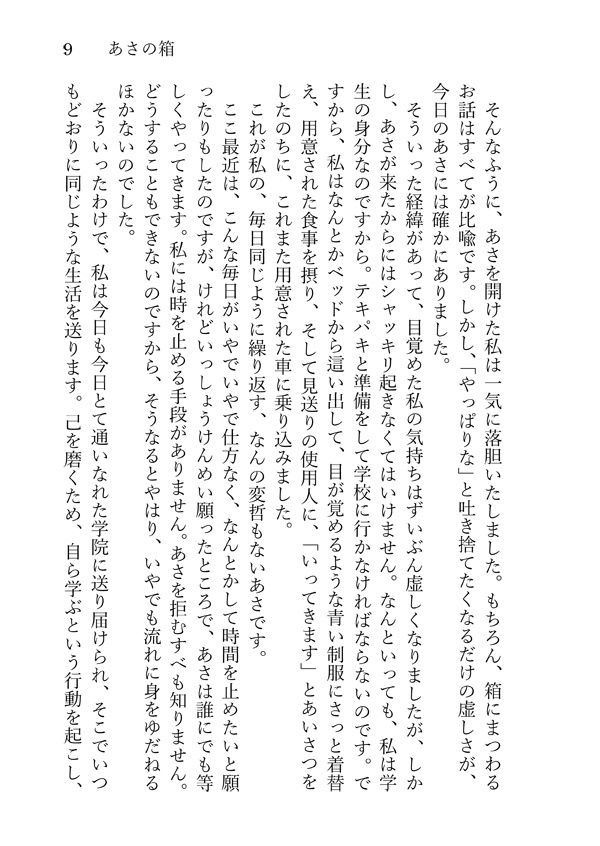 9　あさの箱
　そんなふうに、あさを開けた私は一気に落胆いたしました。もちろん、箱にまつわる
お話はすべてが比喩です。しかし、「やっぱりな」と吐き捨てたくなるだけの虚しさが、
今日のあさには確かにありました。
　そういった経緯があって、目覚めた私の気持ちはずいぶん虚しくなりましたが、しか
し、あさが来たからにはシャッキリ起きなくてはいけません。なんといっても、私は学
生の身分なのですから。テキパキと準備をして学校に行かなければならないのです。で
すから、私はなんとかベッドから這い出して、目が覚めるような青い制服にさっと着替
え、用意された食事を摂り、そして見送りの使用人に、「いってきます」とあいさつを
したのちに、これまた用意された車に乗り込みました。
　これが私の、毎日同じように繰り返す、なんの変哲もないあさです。
　ここ最近は、こんな毎日がいやでいやで仕方なく、なんとかして時間を止めたいと願
ったりもしたのですが、けれどいっしょうけんめい願ったところで、あさは誰にでも等
しくやってきます。私には時を止める手段がありません。あさを拒むすべも知りません。
どうすることもできないのですから、そうなるとやはり、いやでも流れに身をゆだねる
ほかないのでした。
　そういったわけで、私は今日も今日とて通いなれた学院に送り届けられ、そこでいつ
もどおりに同じような生活を送ります。己を磨くため、自ら学ぶという行動を起こし、